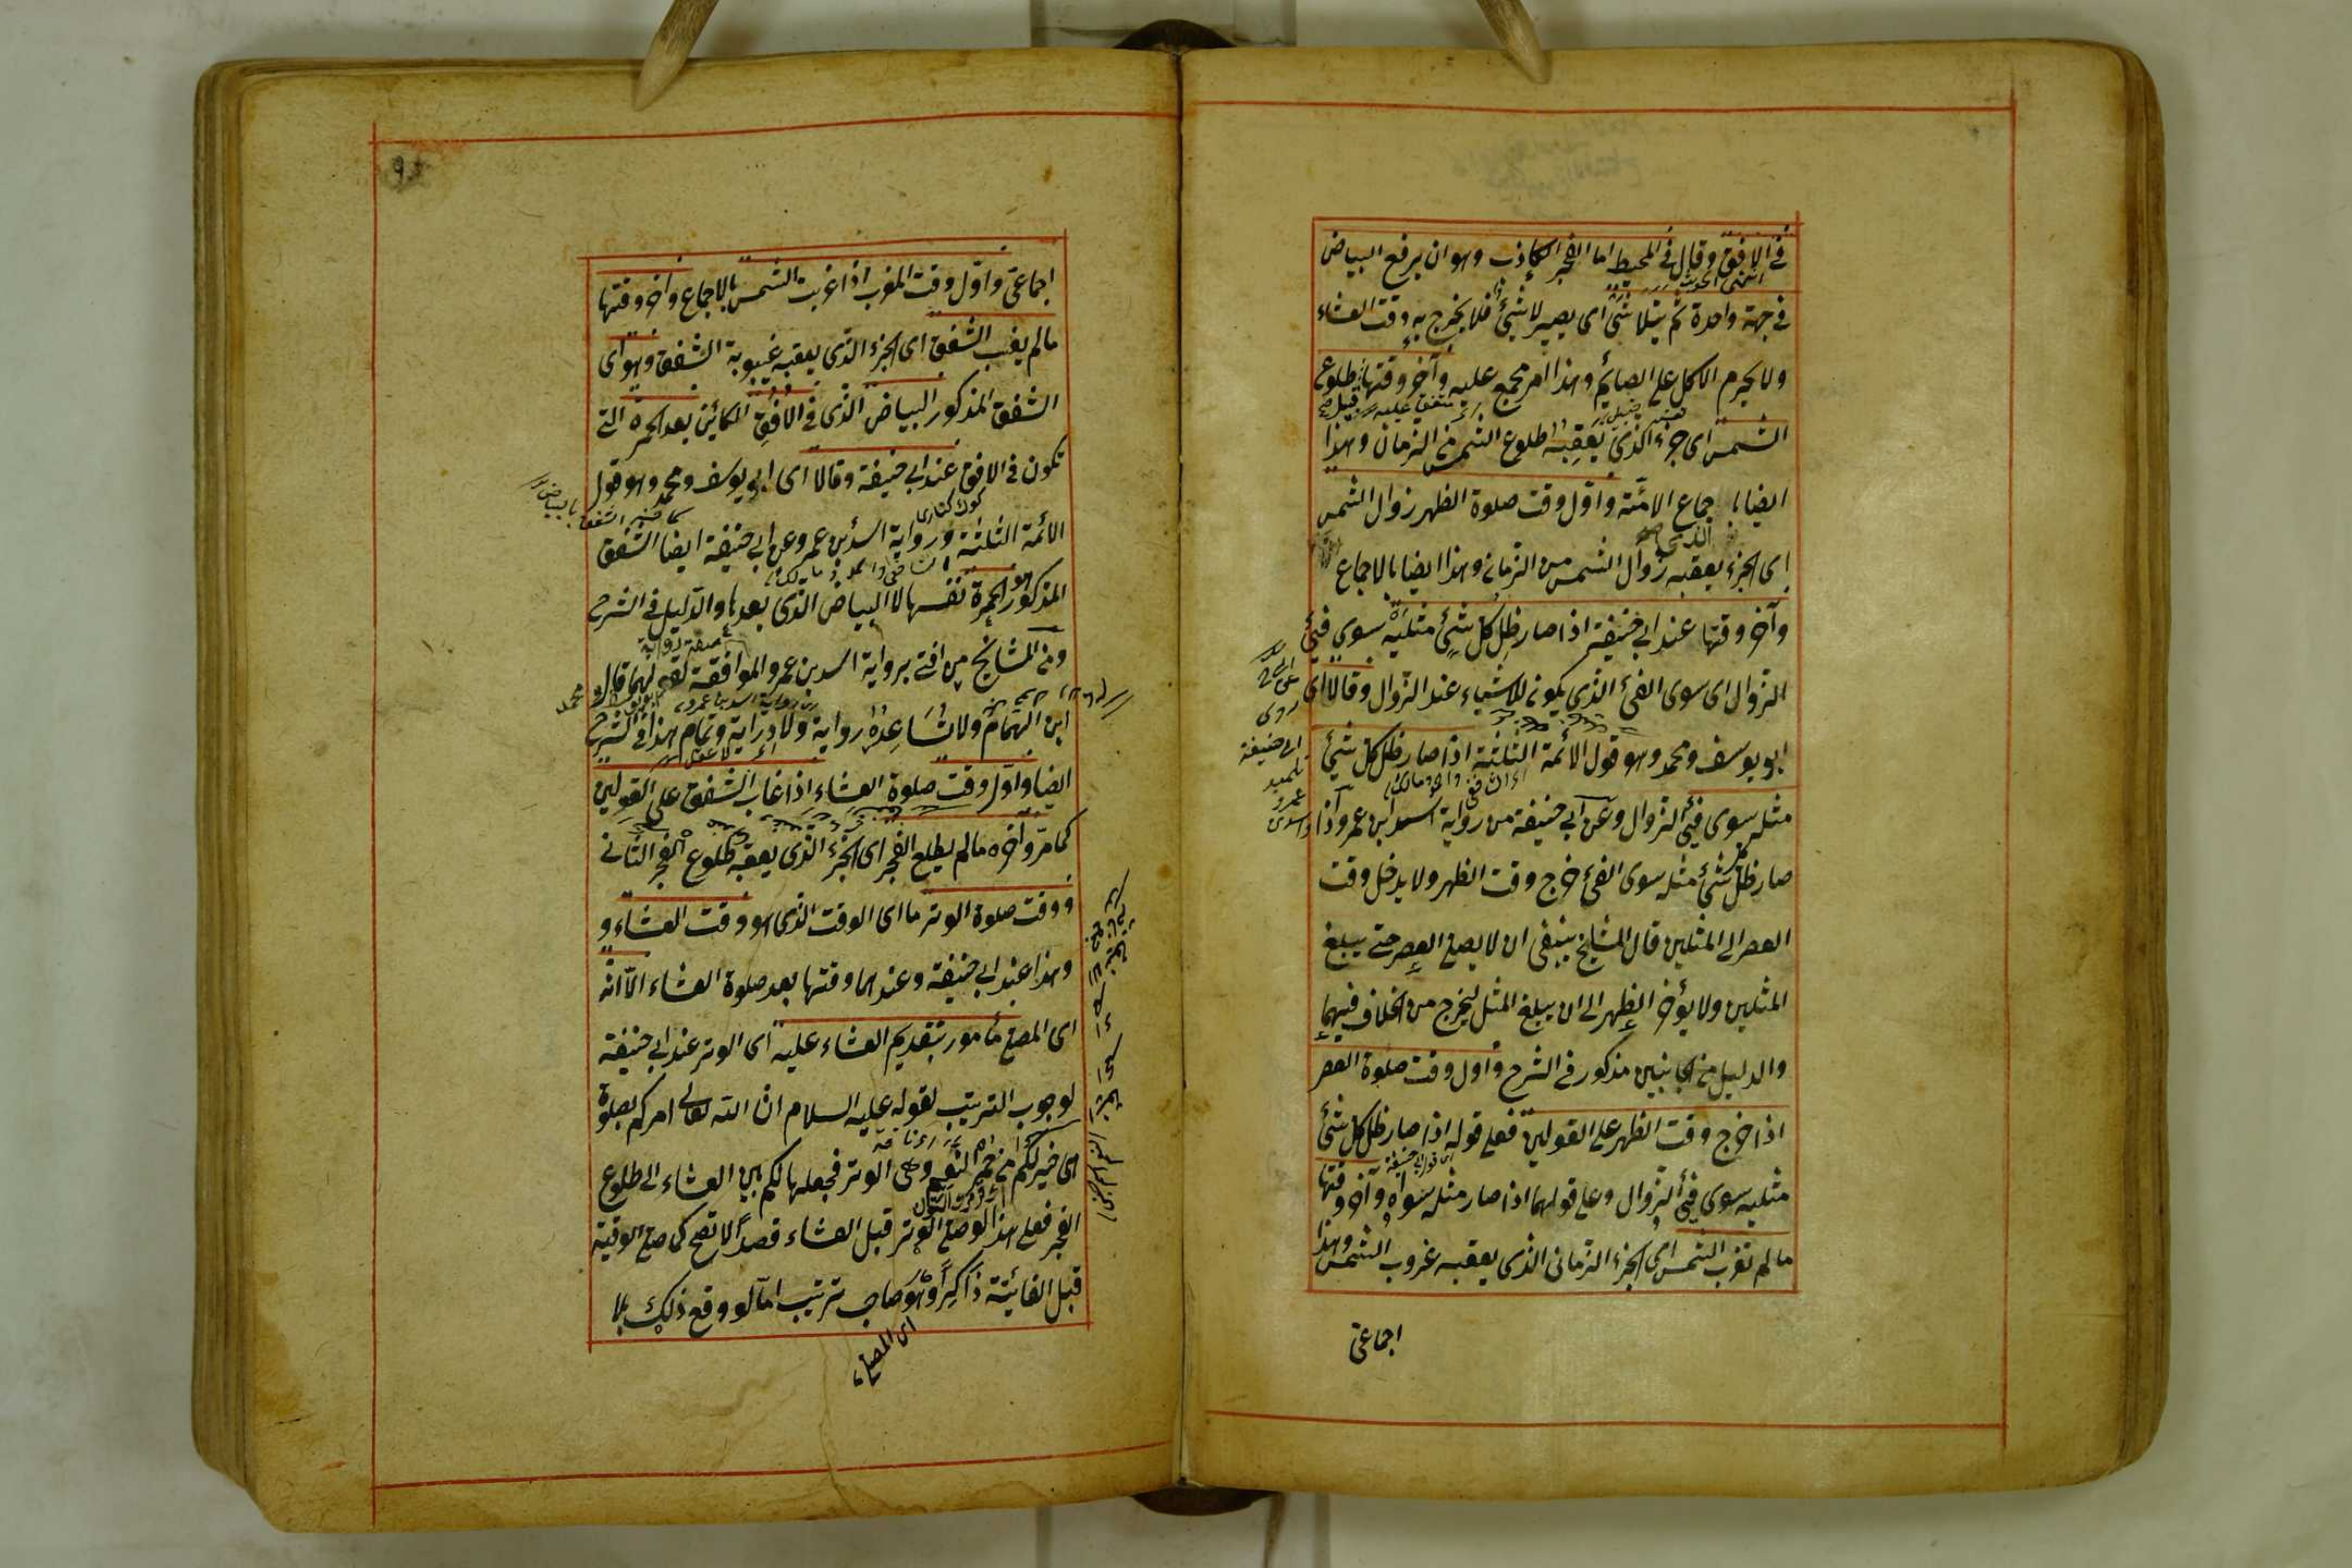 في الافق وقال في المحيط اما الفجر الكاذب وهو ان يرفع البياض
في جهة واحدة ثم يتلاشى اى يصير لا شئ فلا يخرج به وقت العشاء
ولا يحرم الاكل على الصائم وهذا امر مجمع عليه وآخر وقتها قبيل طلوع
متفق عليه
الشمس اى جزء الذي يعقبه طلوع الشمس من الزمان وهذا
ايضا باجماع الائمة واول وقت صلوة الظهر زوال الشمس
اى الجزء الذي يعقبه زوال الشمس من الزمان وهذا ايضا بالاجماع
وآخر وقتها عند ابي حنيفة اذا صار ظل كل شئ مثليه سوى فيئ
الزوال اى سوى الفئ الذي يكون للاشياء عند الزوال وقالا اى
ابو يوسف ومحمد وهو قول الائمة الثلثة اذا صار ظل كل شئ
مثله سوى فيئ الزوال وعن ابي حنيفة من رواية اسد ابن عمرو اذا
صار ظل كل شئ مثله سوى الفئ خرج وقت الظهر ولا يدخل وقت
العصر الى المثلين قال المشايخ ينبغي ان لا يصلي العصر حتى يبلغ
المثلين ولا يؤخر الظهر الى ان يبلغ المثل ليخرج من الخلاف فيهما
والدليل من الجانبين مذكور في الشرح واول وقت صلوة العصر
اذا خرج وقت الظهر على القولين فعلى قوله اذا صار ظل كل شئ
اى قول ابي حنيفة
مثليه سوى فيئ الزوال وعلى قولهما اذا صار مثله سواه وآخر وقتها
مالم تغرب الشمس اى الجزء الزماني الذي يعقبه غروب الشمس وهذا
اجماعي
ابي حنيفة
تلميذ
عمرو
اجماعي واول وقت المغرب اذا غربت الشمس بالاجماع وآخر وقتها
مالم يغب الشفق اى الجزء الذي يعقبه غيبوبة الشفق وهو اى
الشفق المذكور البياض الذي في الافق الكائن بعد الحمرة التي
تكون في الافق عند ابي حنيفة وقالا اى ابو يوسف ومحمد وهو قول
الائمة الثلثة ورواية اسد بن عمرو عن ابي حنيفة ايضا الشفق
المذكور هو الحمرة نفسها لا البياض الذي بعدها والدليل في الشرح
ومن المشايخ من افتى برواية اسد بن عمرو الموافقة لقولهما قال
ابن الهمام ولا تساعده رواية ولا دراية وتمام هذا في الشرح
ايضا واول وقت صلوة العشاء اذا غاب الشفق على القولين
كما مر وآخره مالم يطلع الفجر اى الجزء الذي يعقبه طلوع الفجر الثاني
ووقت صلوة الوتر ما اى الوقت الذي هو وقت العشاء و
وهذا عند ابي حنيفة وعندهما وقتها بعد صلوة العشاء الا انه
اى المصلي مأمور بتقديم العشاء عليه اى الوتر عند ابي حنيفة
لوجوب الترتيب لقوله عليه السلام ان الله تعالى امركم بصلوة
هى خير لكم من حمر النعم وهى الوتر فجعلها لكم بين العشاء الى طلوع
الفجر فعلى هذا لو صلى الوتر قبل العشاء قصدا لا تصح كمن صلى الوقتية
قبل الفائتة ذاكرا وهو صاحب ترتيب اما لو وقع ذلك بلا
اى المصلي